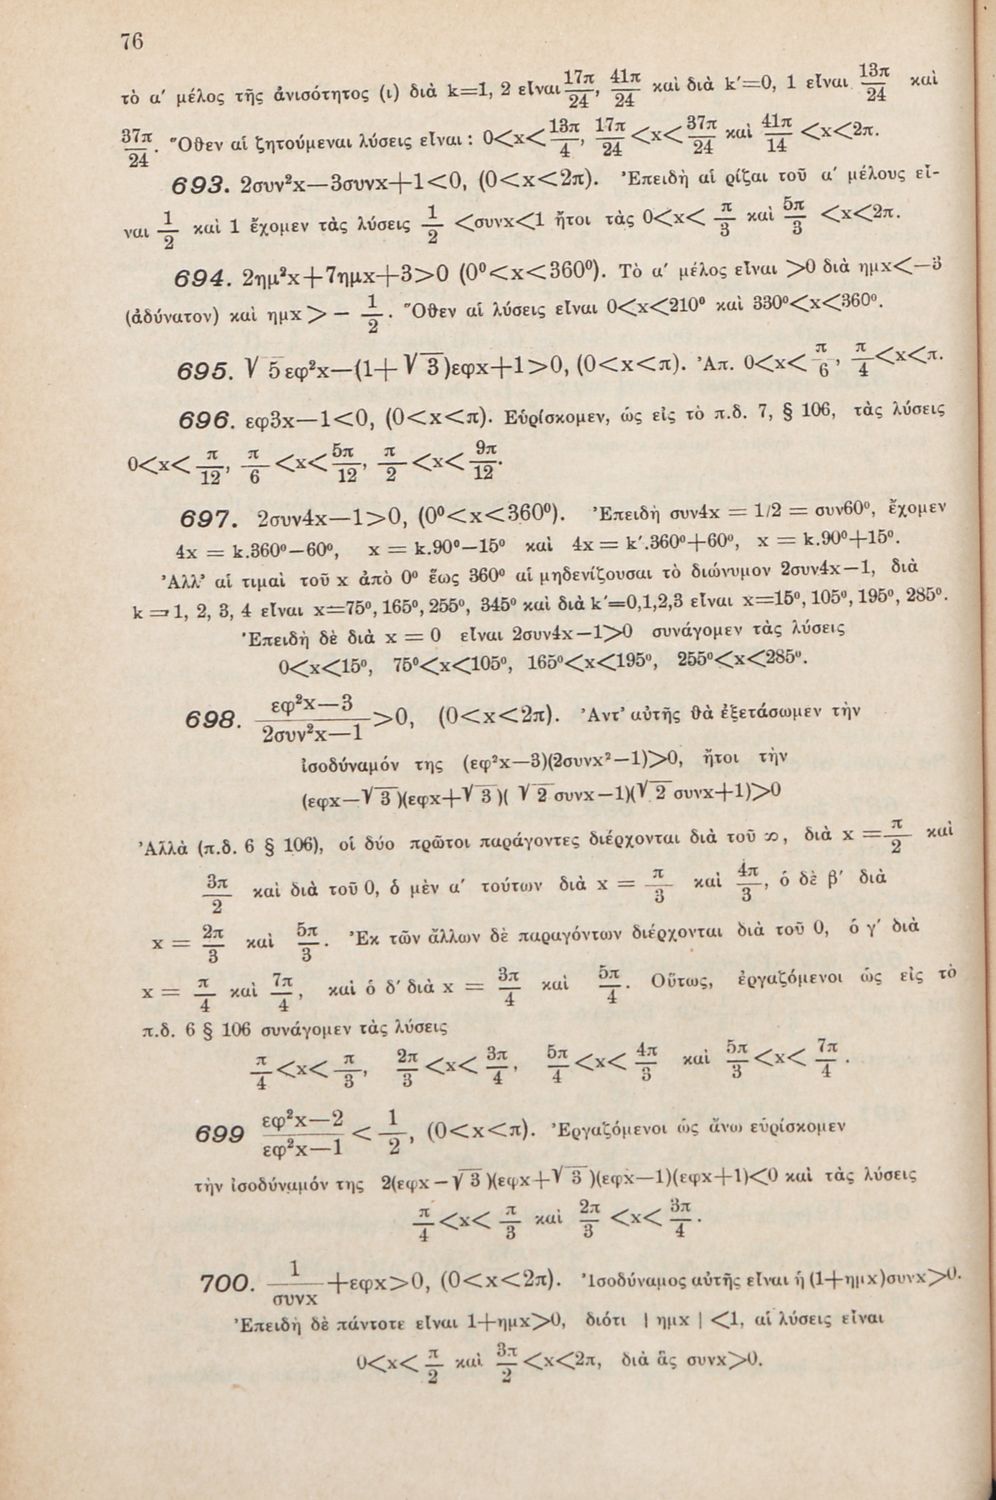 76
τὸ α' μέλος τῆς ἀνισότητος (ι) διὰ k=1, 2 εἶναι 17π/24, 41π/24 καὶ διὰ k'=0, 1 εἶναι 13π/24 καὶ
37π/24. Ὅθεν αἱ ζητούμεναι λύσεις εἶναι : 0<x<13π/4, 17π/24 <x< 37π/24 καὶ 41π/14 <x<2π.
693. 2συν²x—3συνx+1<0, (0<x<2π). Ἐπειδὴ αἱ ρίζαι τοῦ α' μέλους εἶ-
ναι 1/2 καὶ 1 ἔχομεν τὰς λύσεις 1/2 <συνx<1 ἤτοι τὰς 0<x< π/3 καὶ 5π/3 <x<2π.
694. 2ημ²x+7ημx+3>0 (0⁰<x<360⁰). Τὸ α' μέλος εἶναι >0 διὰ ημx<—3
(ἀδύνατον) καὶ ημx > — 1/2. Ὅθεν αἱ λύσεις εἶναι 0<x<210⁰ καὶ 330⁰<x<360⁰.
695. √5 εφ²x—(1+√3)εφx+1>0, (0<x<π). Ἀπ. 0<x< π/6, π/4<x<π.
696. εφ3x—1<0, (0<x<π). Εὑρίσκομεν, ὡς εἰς τὸ π.δ. 7, § 106, τὰς λύσεις
0<x< π/12, π/6 <x< 5π/12, π/2 <x< 9π/12.
697. 2συν4x—1>0, (0⁰<x<360⁰). Ἐπειδὴ συν4x = 1/2 = συν60⁰, ἔχομεν
4x = k.360⁰—60⁰, x = k.90⁰—15⁰ καὶ 4x = k'.360⁰+60⁰, x = k.90⁰+15⁰.
Ἀλλ' αἱ τιμαὶ τοῦ x ἀπὸ 0⁰ ἕως 360⁰ αἱ μηδενίζουσαι τὸ διώνυμον 2συν4x—1, διὰ
k = 1, 2, 3, 4 εἶναι x=75⁰, 165⁰, 255⁰, 345⁰ καὶ διὰ k'=0,1,2,3 εἶναι x=15⁰, 105⁰, 195⁰, 285⁰.
Ἐπειδὴ δὲ διὰ x = 0 εἶναι 2συν4x—1>0 συνάγομεν τὰς λύσεις
0<x<15⁰, 75⁰<x<105⁰, 165⁰<x<195⁰, 255⁰<x<285⁰.
698. (εφ²x—3)/(2συν²x—1) >0, (0<x<2π). Ἀντ' αὐτῆς θὰ ἐξετάσωμεν τὴν
ἰσοδύναμόν της (εφ²x—3)(2συνx²—1)>0, ἤτοι τὴν
(εφx—√3)(εφx+√3)(√2 συνx—1)(√2 συνx+1)>0
Ἀλλὰ (π.δ. 6 § 106), οἱ δύο πρῶτοι παράγοντες διέρχονται διὰ τοῦ ∞, διὰ x = π/2 καὶ
3π/2 καὶ διὰ τοῦ 0, ὁ μὲν α' τούτων διὰ x = π/3 καὶ 4π/3, ὁ δὲ β' διὰ
x = 2π/3 καὶ 5π/3. Ἐκ τῶν ἄλλων δὲ παραγόντων διέρχονται διὰ τοῦ 0, ὁ γ' διὰ
x = π/4 καὶ 7π/4, καὶ ὁ δ' διὰ x = 3π/4 καὶ 5π/4. Οὕτως, ἐργαζόμενοι ὡς εἰς τὸ
π.δ. 6 § 106 συνάγομεν τὰς λύσεις
π/4 <x< π/3, 2π/3 <x< 3π/4, 5π/4 <x< 4π/3 καὶ 5π/3 <x< 7π/4.
699 (εφ²x—2)/(εφ²x—1) < 1/2, (0<x<π). Ἐργαζόμενοι ὡς ἄνω εὑρίσκομεν
τὴν ἰσοδύναμόν της 2(εφx—√3)(εφx+√3)(εφx—1)(εφx+1)<0 καὶ τὰς λύσεις
π/4 <x< π/3 καὶ 2π/3 <x< 3π/4.
700. 1/συνx +εφx>0, (0<x<2π). Ἰσοδύναμος αὐτῆς εἶναι ἡ (1+ημx)συνx>0.
Ἐπειδὴ δὲ πάντοτε εἶναι 1+ημx>0, διότι | ημx | <1, αἱ λύσεις εἶναι
0<x< π/2 καὶ 3π/2 <x<2π, διὰ ἃς συνx>0.